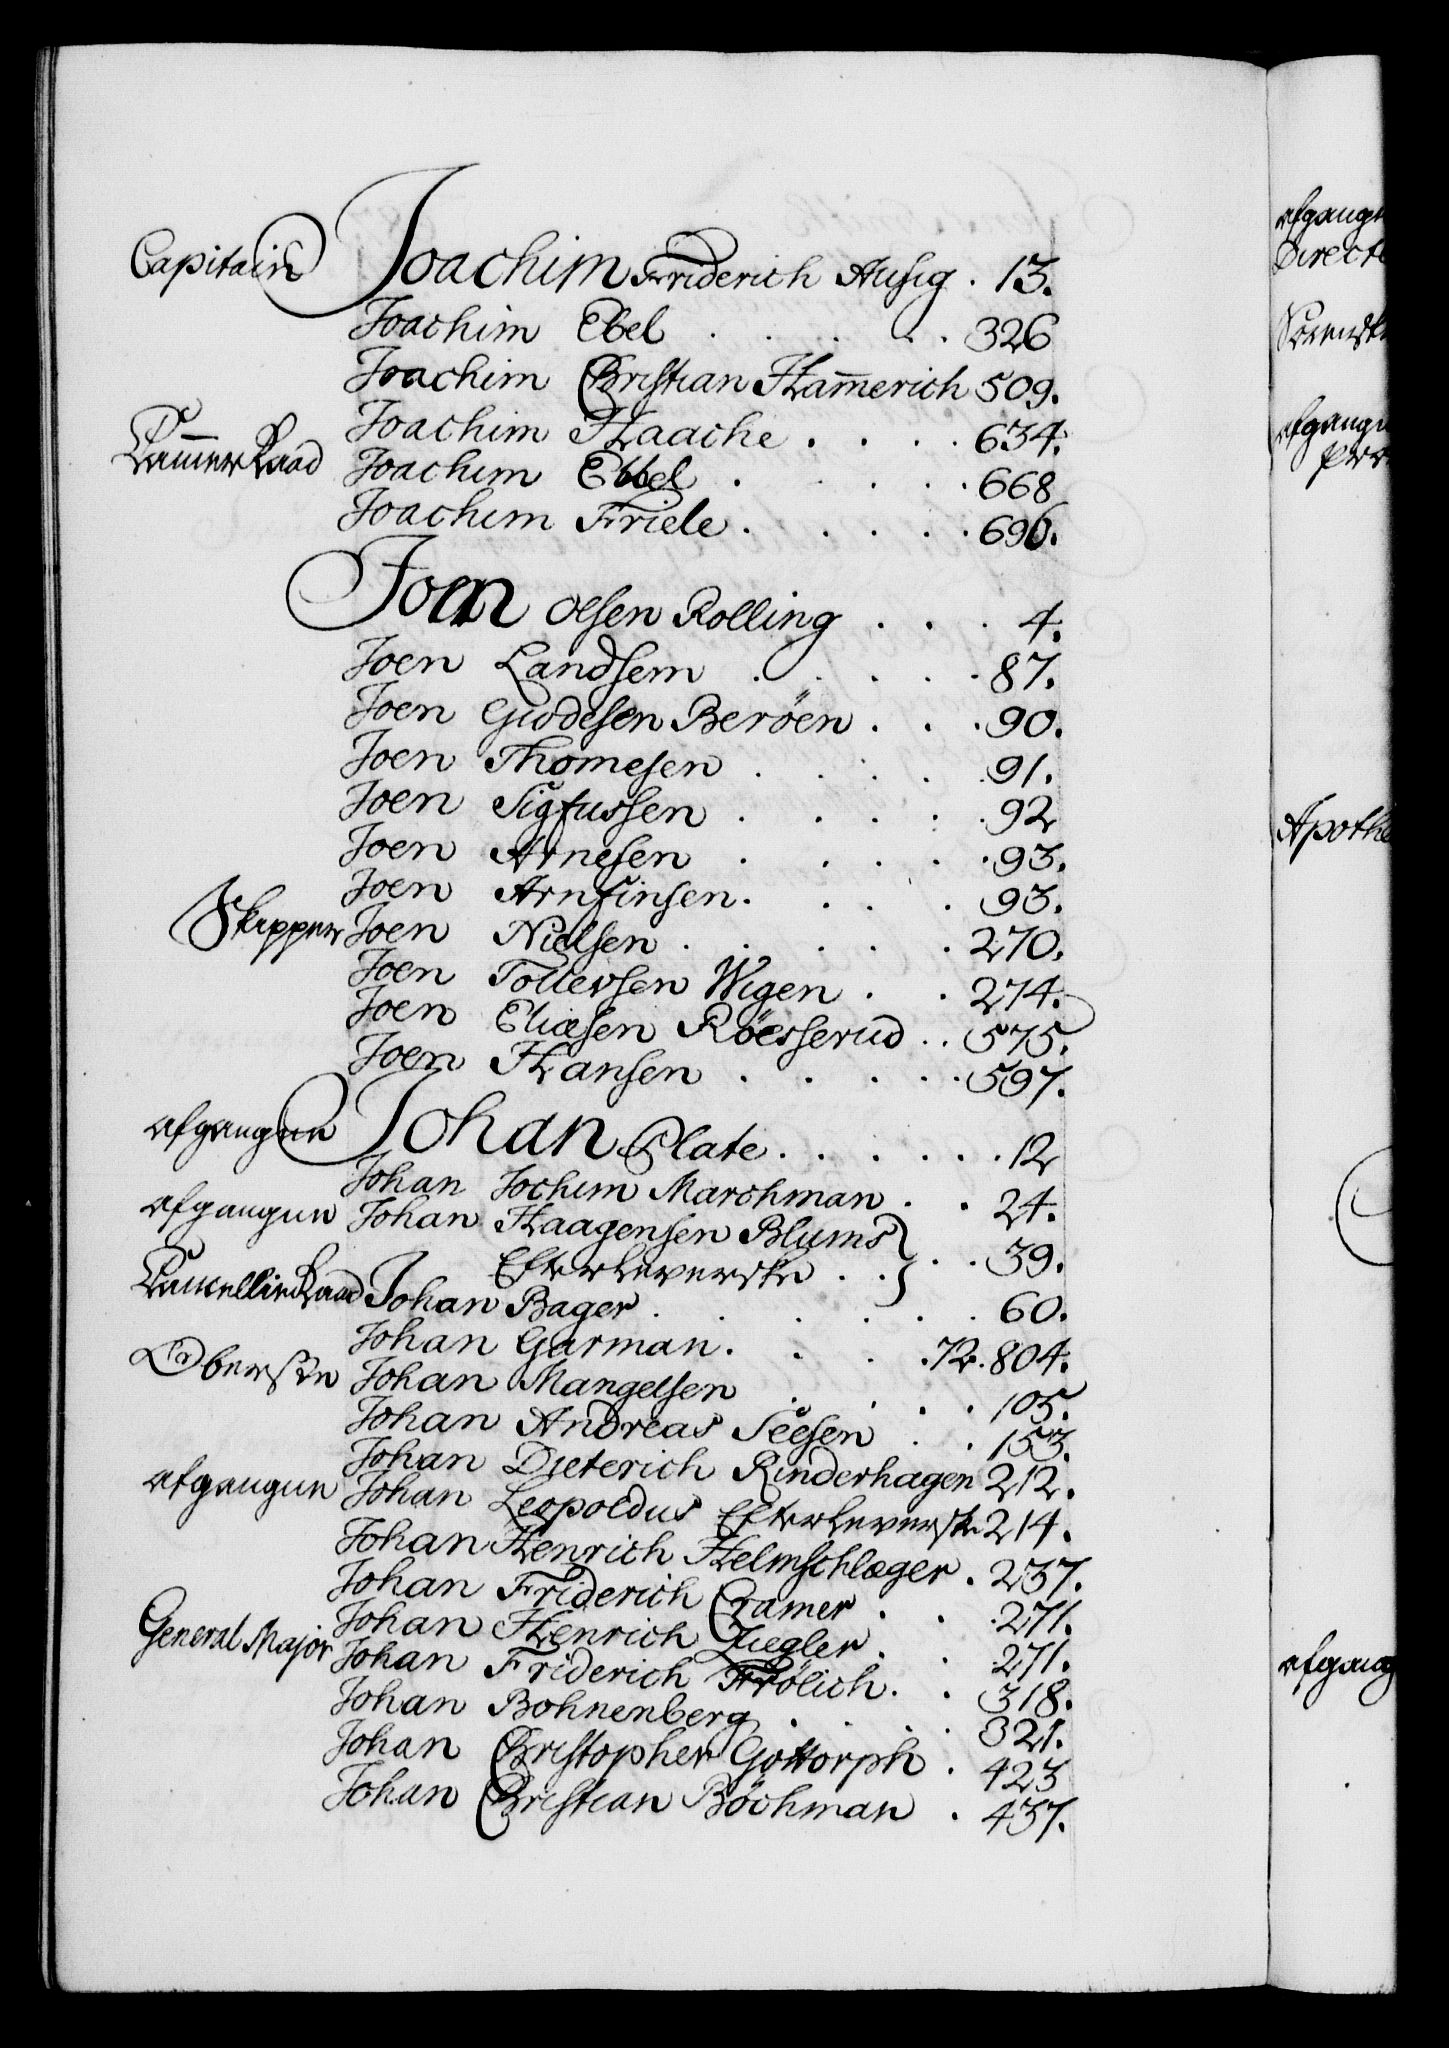 Capitain Joachim Friderich Ausig . 13.
Joachim Ebel . . . . . 326
Joachim Christian Ham̄erich 509.
Joachim Haache . . . . 634.
Cam̄erRaad Joachim Ebbel . . . . . 668
Joachim Friele . . . . . 696.
Joen Olsen Rolling . . . 4.
Joen Landsem . . . . . 87.
Joen Gudesen Beröen . . . 90.
Joen Thomesen . . . . . 91.
Joen Sigfussen . . . . . 92
Joen Arnesen . . . . . 93.
Joen Arnfinsen . . . . 93.
Skipper Joen Nielsen . . . . . 270.
Joen Tollevsen Wigen . . 274.
Joen Eliæsen Röesserud . . 575.
Joen Hansen . . . . . 597.
afgangne Johan Plate . . . . . . 12
Johan Jochim Marchman . . 24.
afgangne Johan Haagensen Blums
Efterleverske . . } . . 39.
CancellieRaad Johan Bager . . . . . . 60.
Johan Garman . . . . 72. 804.
Oberste Johan Mangelsen . . . . 105.
Johan Andreas Seesen . . 153.
Johan Dieterich Rinderhagen 212.
afgangne Johan Leopoldus Efterleverske 214.
Johan Henrich Helmschlager . 237.
Johan Friderich Cramer . . . 271.
Johan Henrich Ziegler . . . 271.
General Major Johan Friderich Frölich . . 318.
Johan Bohnenberg . . . . 321.
Johan Christopher Gottorph . 423
Johan Christian Böchman . 437.
afgangn
Directe
afgangn
Apothe
afgang